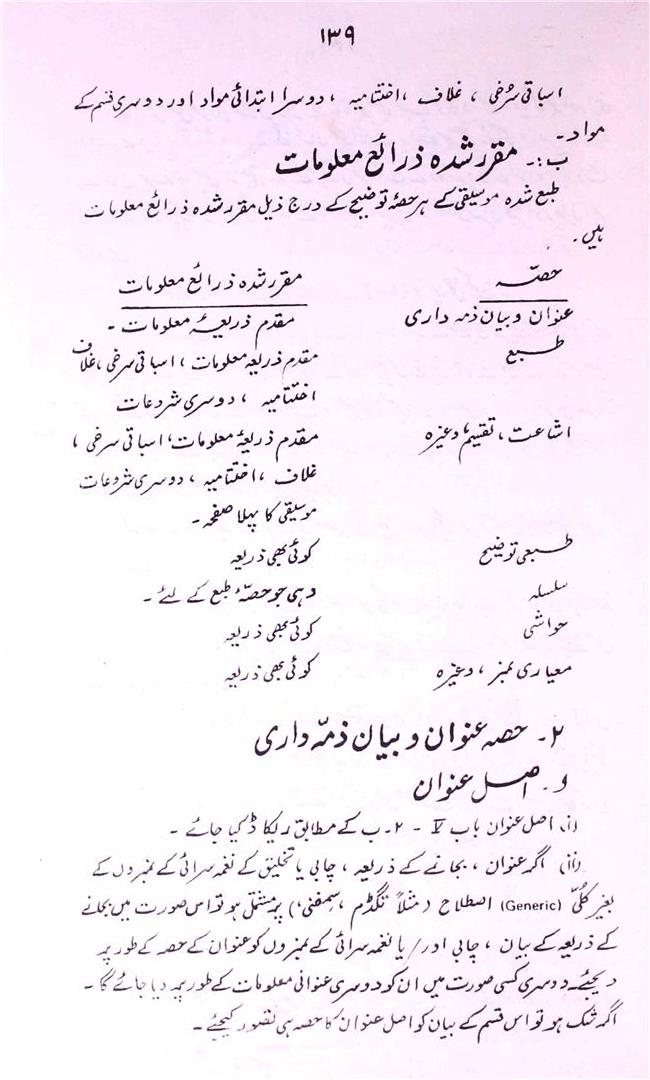 ۱۳۹
اسباقی سُرخی ، غلاف ، اختتامیہ ، دوسرا ابتدائی مواد اور دوسری قسم کے
مواد۔
ب :۔ مقرر شدہ ذرائع معلومات
طبع شدہ موسیقی کے ہر حصۂ توضیح کے درج ذیل مقرر شدہ ذرائع معلومات
ہیں۔
حصّہ مقرر شدہ ذرائع معلومات
عنوان و بیان ذمہ داری مقدم ذریعۂ معلومات ۔
طبع مقدم ذریعہ معلومات ، اسباقی سرخی ، غلاف
اختتامیہ ، دوسری شروعات
اشاعت ، تقسیم ، وغیرہ مقدم ذریعۂ معلومات، اسباقی سرخی ،
غلاف ، اختتامیہ ، دوسری شروعات
موسیقی کا پہلا صفحہ ۔
طبعی توضیح کوئی بھی ذریعہ
سلسلہ وہی جو حصّۂ طبع کے لئے ۔
حواشی کوئی بھی ذریعہ
معیاری نمبر ، وغیرہ کوئی بھی ذریعہ
۲۔ حصہ عنوان و بیان ذمّہ داری
و۔ اصل عنوان
(i) اصل عنوان باب V - ۲ ۔ ب کے مطابق ریکارڈ کیا جائے ۔
(ii) اگر عنوان ، بجانے کے ذریعہ ، چابی یا تخلیق کے نغمہ سرائی کے نمبروں کے
بغیر کُلّی (Generic) اصطلاح (مثلاً نگڈم ، سمفنی،) پر مشتمل ہو تو اس صورت میں بجانے
کے ذریعہ کے بیان ، چابی اور / یا نغمہ سرائی کے نمبروں کو عنوان کے حصہ کے طور پر
دیجئے۔ دوسری کسی صورت میں ان کو دوسری عنوانی معلومات کے طور پر دیا جائے گا ۔
اگر شک ہو تو اس قسم کے بیان کو اصل عنوان کا حصہ ہی تصور کیجئے ۔